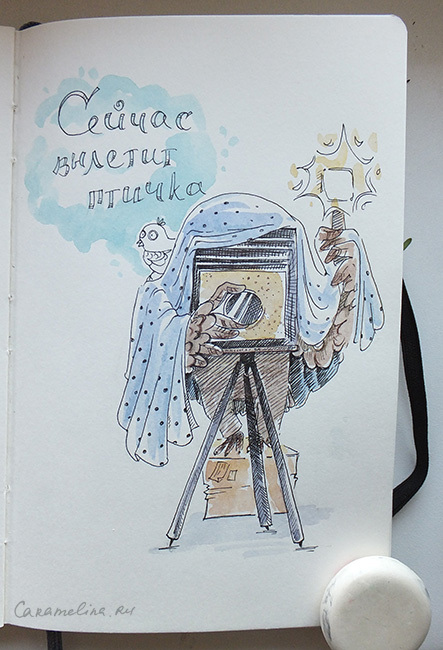 Сейчас
вылетит
птичка
Caramelina.ru